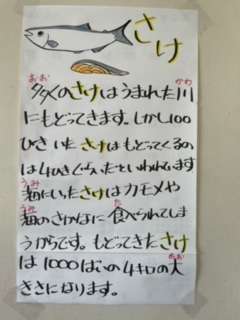 さけ
多くのさけはうまれた川
にもどってきます。しかし100
ぴきいたさけはもどってくるの
は4ひきぐらいだといわれています
海にいったさけはカモメや
海のさかなに食べられてしま
うからです。もどってきたさけ
は1000ばいの4キロの大
きさになります。